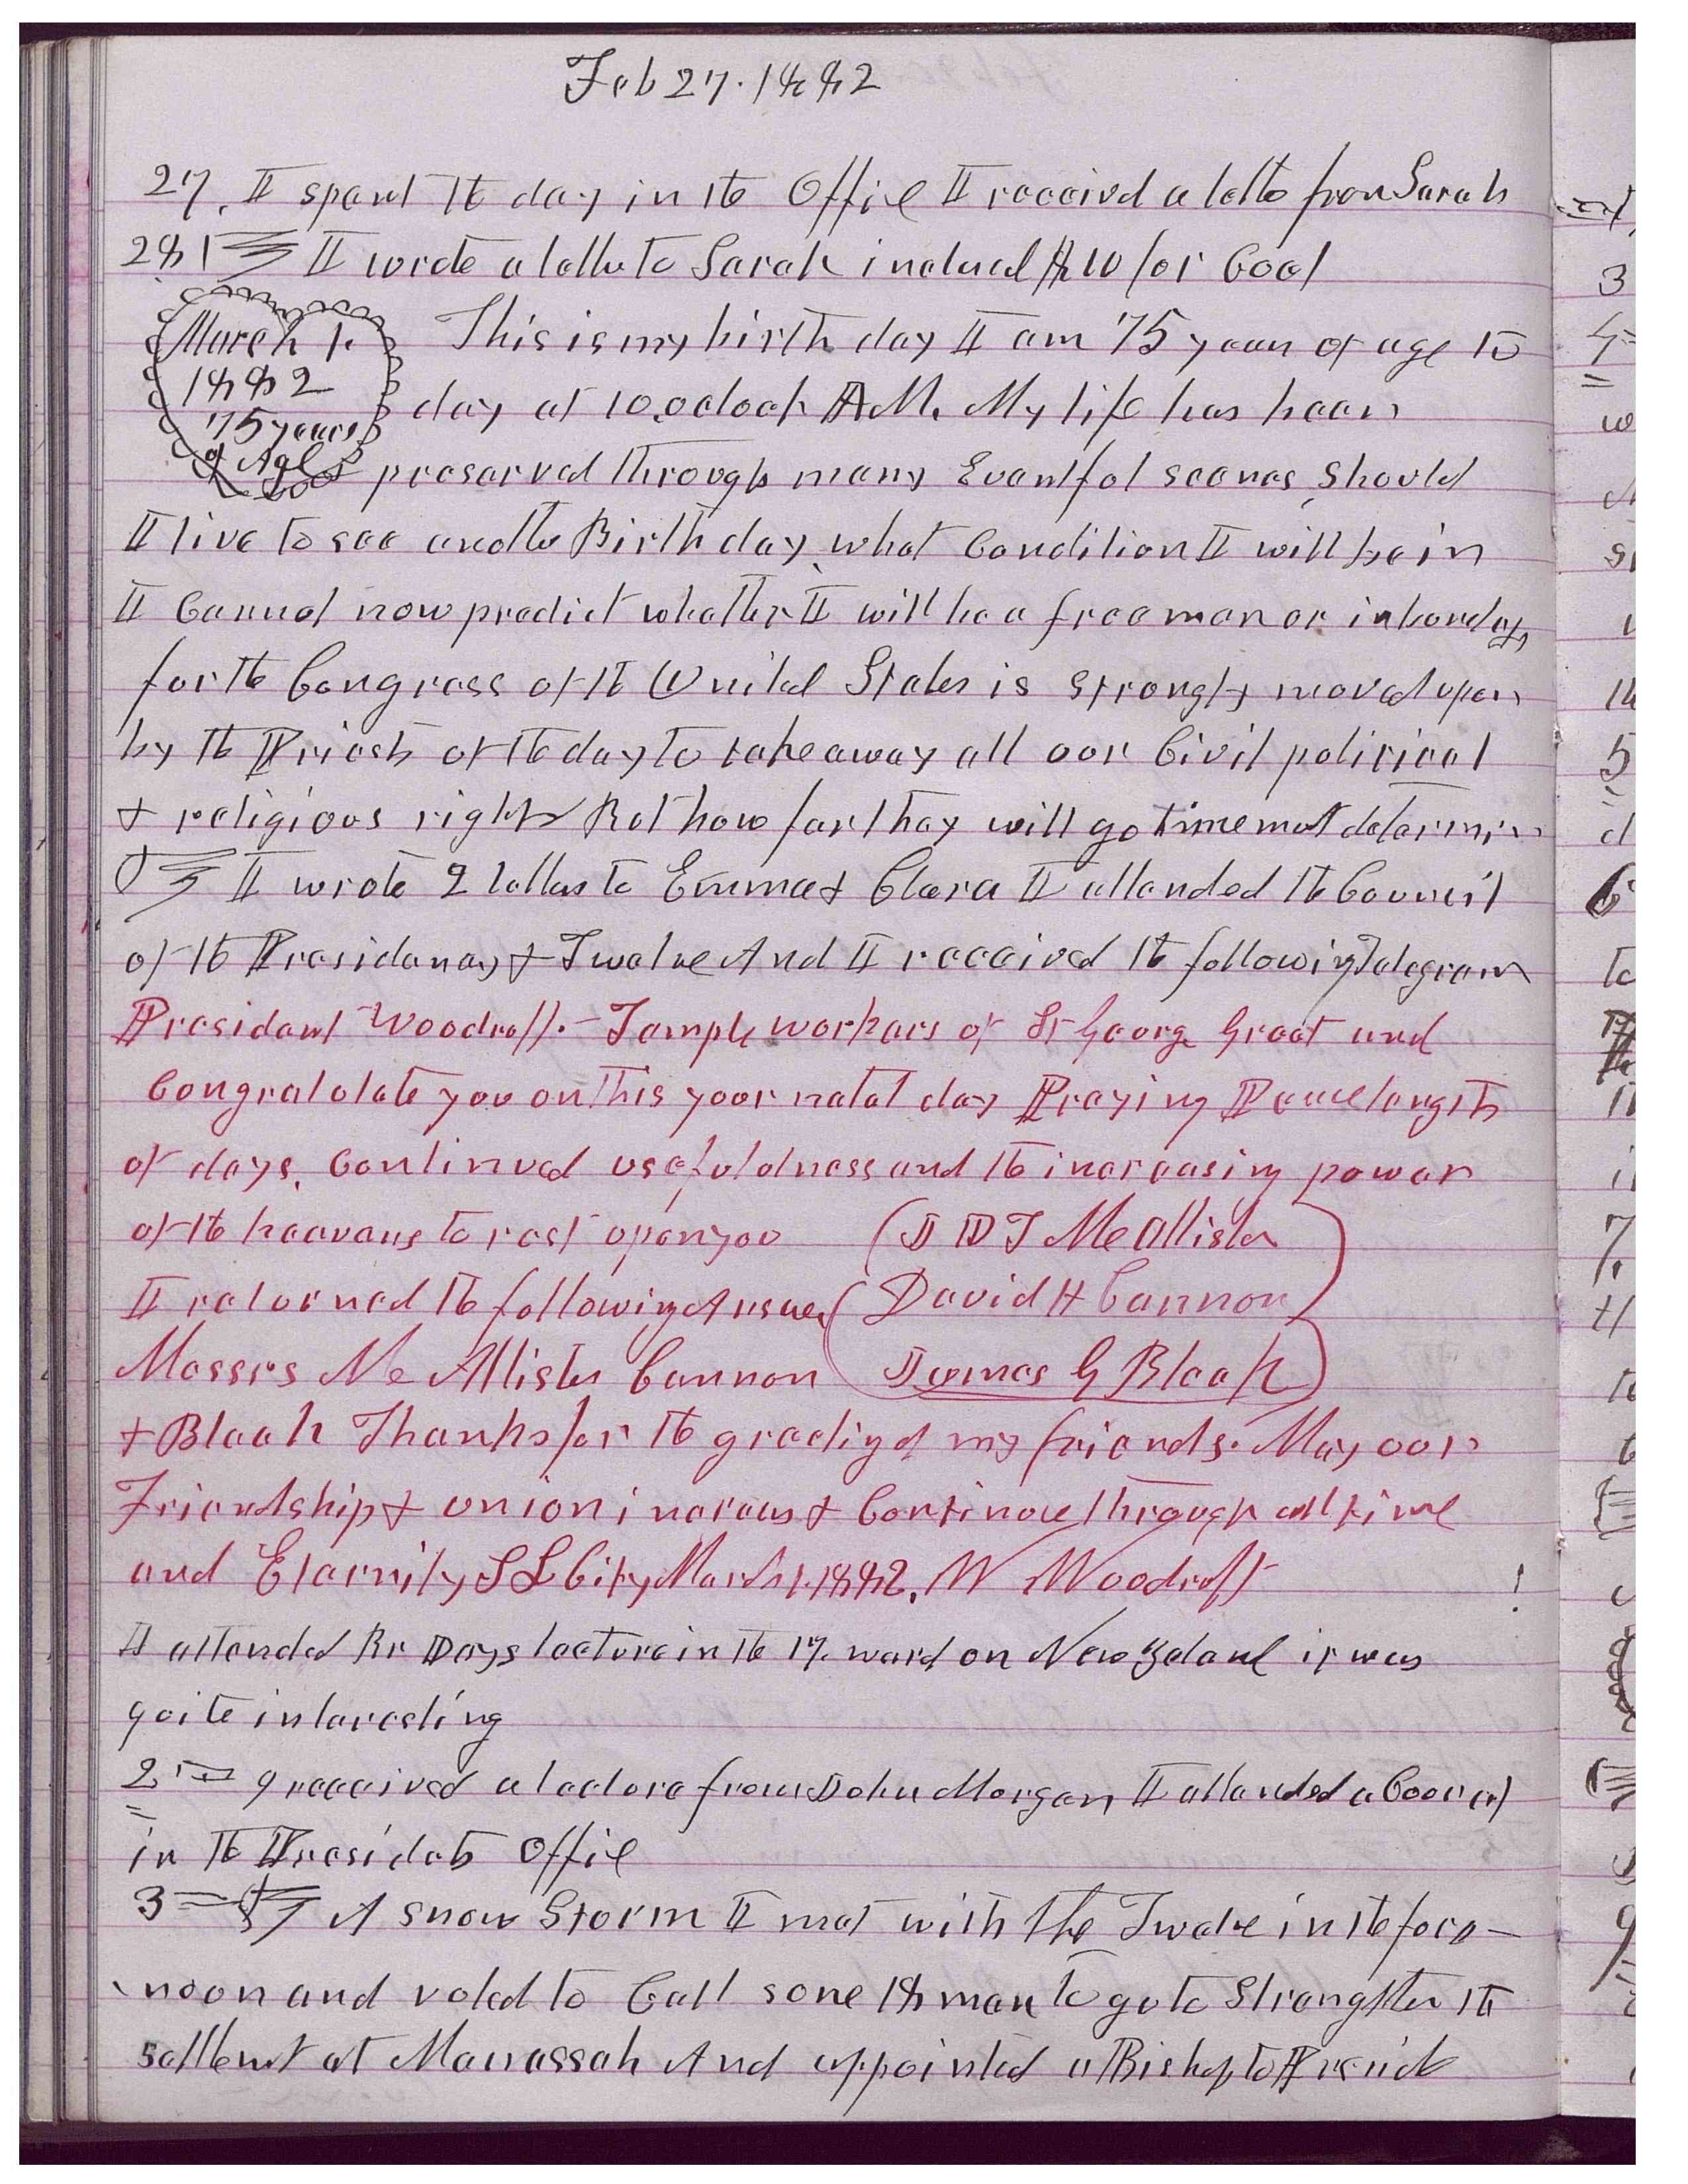 Feb 27. 1882
27. I spent the day in the Office I receeivd a lette from Sarah
28 I wrote a lette to Sarah inclused $10 for Coal
March 1.
1882
75 years
of Age
This is my birth day I am 75 years of age to
day at 10,oclock AM. My life has been
preserved through many Eventful scenes, Should
I live to see anothr Birth day, what Condition I will be in
I Cannot now predict whether I will be a free man or in bondage,
for the Congress of the United States is strongly moved upon
by the Priests of the day to take away all our Civil political
& religious rights But how far they will go time must determin
I wrote 2 letters to Emma & Clara I attended the Council
of the Presidency & Twelve And I received the following Telegram
President Woodruff.- Temple workers of St George Greet and
Congratulate you on this your natal day Praying Peace length
of days, Continued usefuldness and the increasing power
of the heavens to rest upon you
(D D T McAllister
David H Cannon
James G Bleak)
I returned the following Answer
Messrs McAllister Cannon
& Bleak Thanks for the greeting of my friends. May our
Friendship & union increas & Continue through all time
and Eternity S L City March 1. 1882. W Woodruff
I attended Br Days lecture in the 17. ward on New Zeland it was
quite interesting
2 I receeived a lecture from John Morgan I attended a Council
in the Presidets Office
3 A snow Storm I met with the Twelve in the fore-
noon and voted to Call some 18 men to go to Strengthen the
settlemt at Manassah And appointed a Bishop to Preside